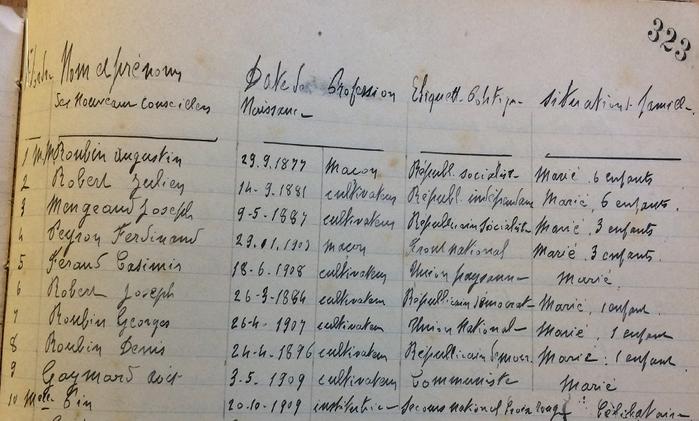 323
Nom et prénoms Date de Profession Etiquette Politique Situation de famille
des nouveaux conseillers Naissance
1 M.M Roubin Augustin 29.9.1877 maçon Républ. socialiste Marié. 6 enfants
2 Robert Julien 14-9-1881 cultivateur Républ. indépendant Marié, 6 enfants.
3 Mengeaud Joseph 9-5-1887 cultivateur Républicain socialiste Marié. 3 enfants
4 Peyron Ferdinand 29.01.1903 maçon Front national Marié. 3 enfants.
5 Feraud Casimir 18-6-1908 cultivateur Union paysanne Marié.
6 Robert Joseph 26-9-1884 cultivateur Républicain démocrat- Marié, 1 enfant.
7 Roubin Georges 26-4-1907 cultivateur Union National- Marié, 1 enfant
8 Roubin Denis 24-4-1896 cultivateur Républicain démocr. Marié: 1 enfant.
9 Gaymard 3-5-1909 cultivateur Communiste Marié
10 Melle Pin 20-10-1909 institutrice Secours national Croix rouge Célibataire